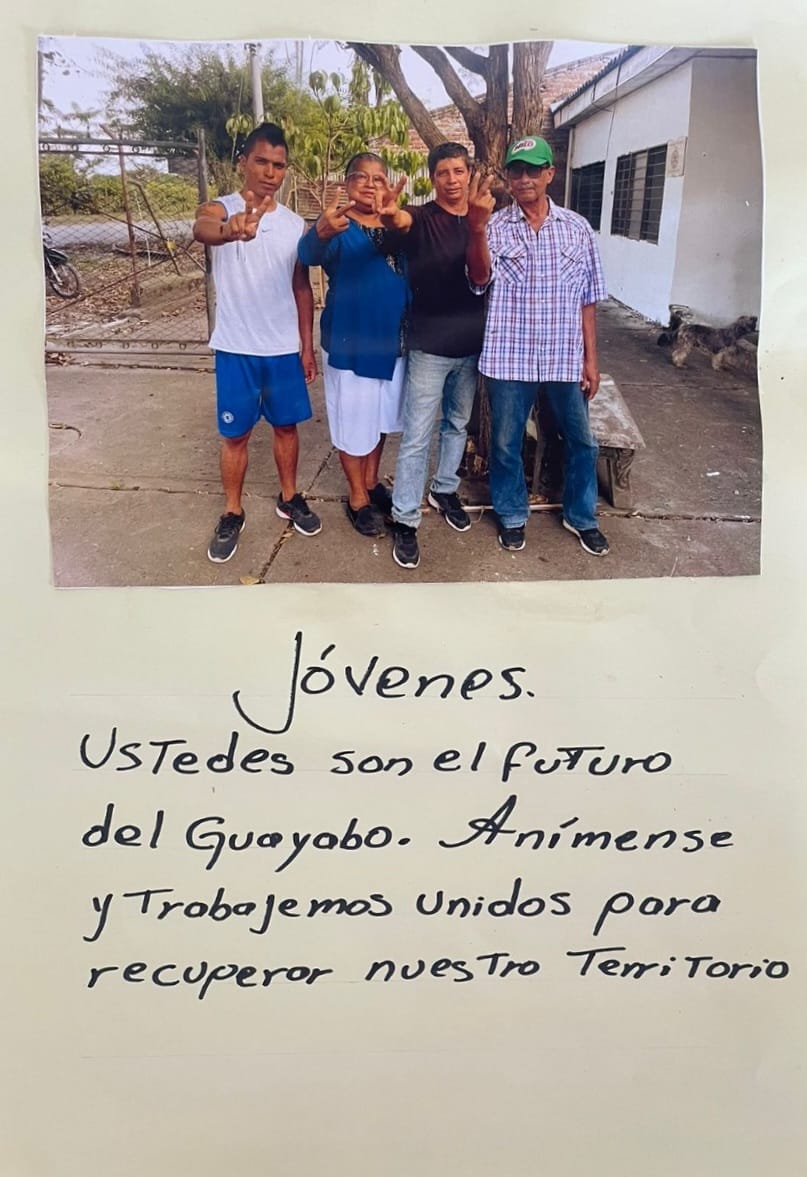 Jóvenes.
Ustedes son el futuro
del Guayabo. Anímense
y Trabajemos unidos para
recuperar nuestro Territorio